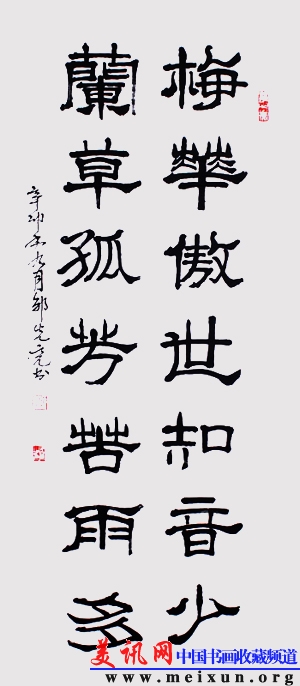 梅華傲世知音少
蘭草孤芳苦雨多
辛卯年九月鄒光亮書
美讯网 中国书画收藏频道
www.meixun.org